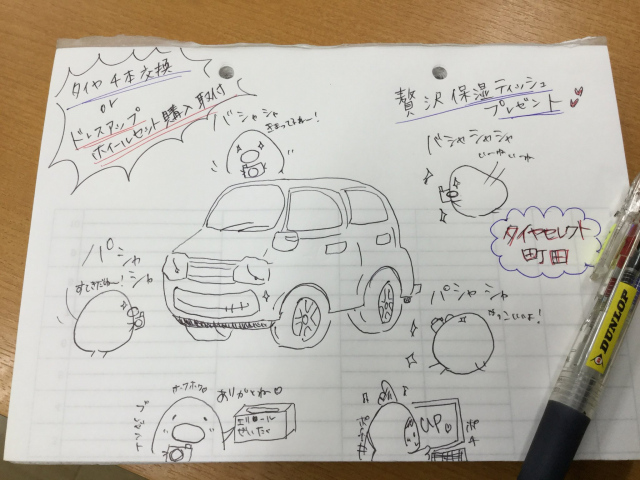 タイヤ4本交換
or
ドレスアップ
ホイールセット購入取付
贅沢保湿ティッシュ
プレゼント
バシャシャ
きまってるねー!
バシャシャシャ
いーねいーね
タイヤセレクト
町田
パシャ
シャ
すてきだねー!
パシャシャ
かっこいいよ!
ありがとねー
ホクホク
エリエール
ぜいたく
UP
ポチ
DUNLOP